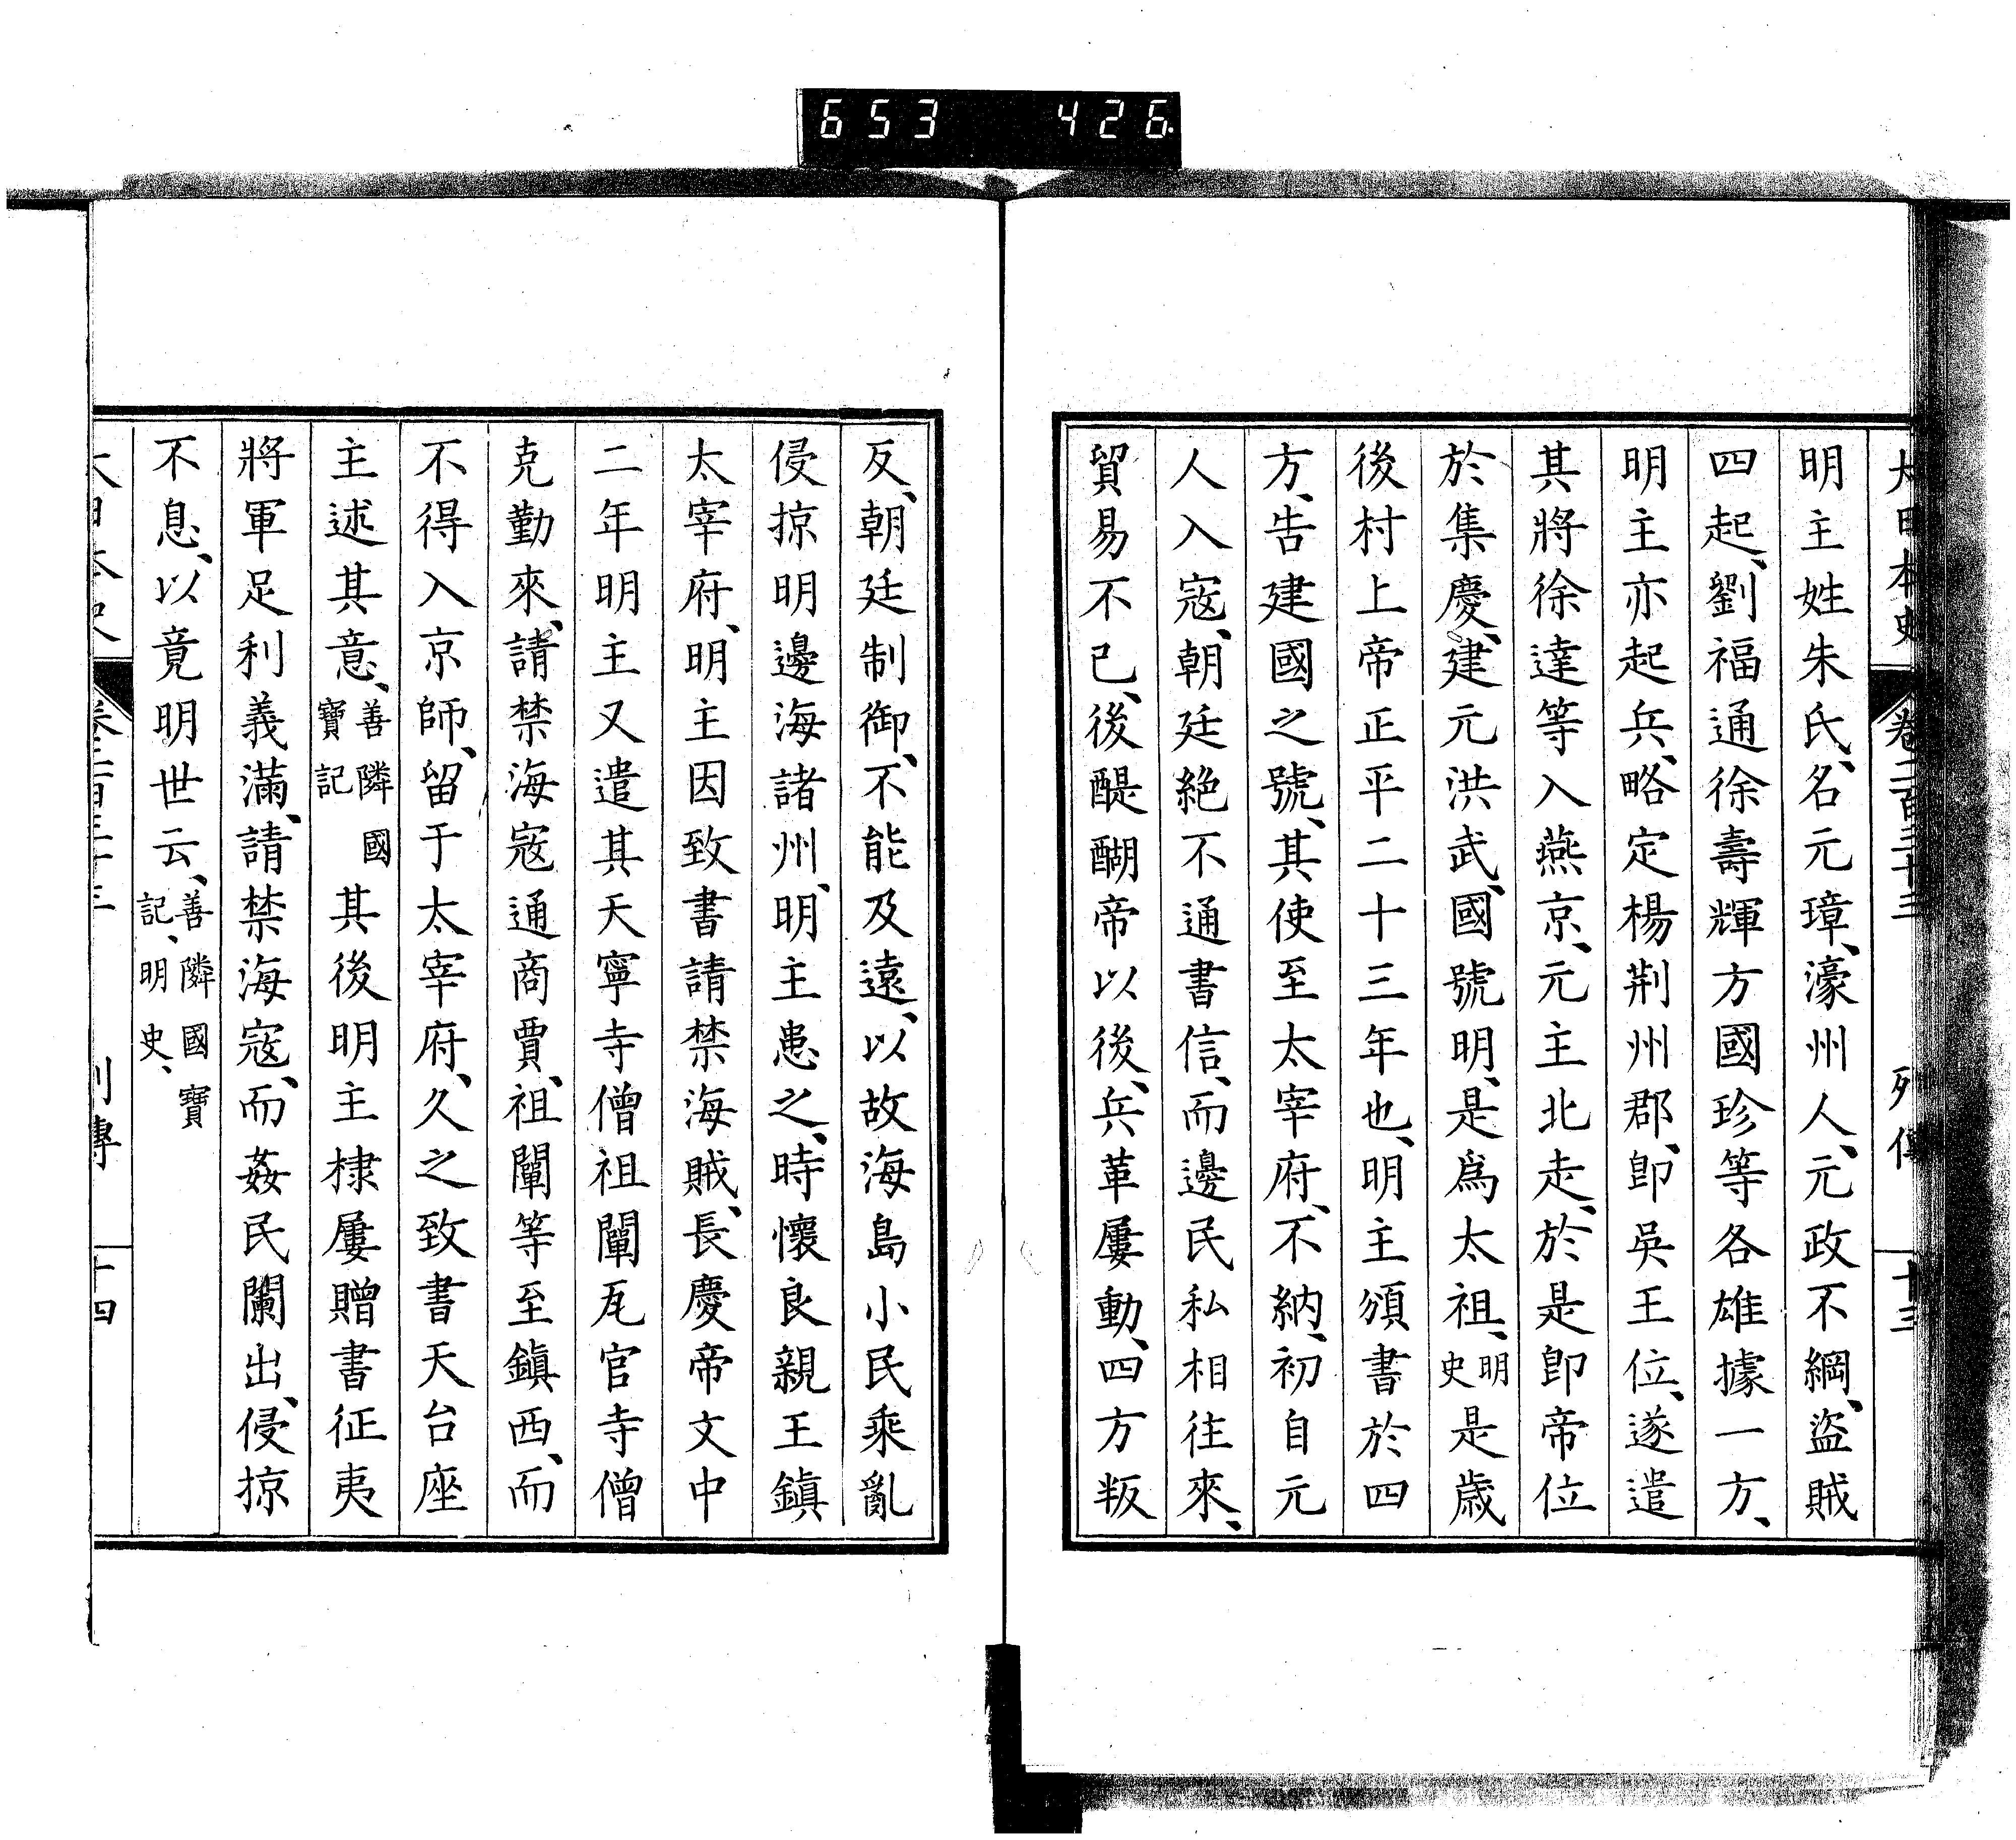 653 426
大日本史 卷二百四十三 列傳 十三
明主姓朱氏、名元璋、濠州人、元政不綱、盜賊
四起、劉福通徐壽輝方國珍等各雄據一方、
明主亦起兵、略定楊荆州郡、卽吳王位、遂遣
其將徐達等入燕京、元主北走、於是卽帝位
於集慶、建元洪武、國號明、是爲太祖、明史是歲
後村上帝正平二十三年也、明主頒書於四
方、告建國之號、其使至太宰府、不納、初自元
人入寇、朝廷絶不通書信、而邊民私相往來、
貿易不已、後醍醐帝以後、兵革屢動、四方叛
反、朝廷制御、不能及遠、以故海島小民乘亂
侵掠明邊海諸州、明主患之、時懷良親王鎭
太宰府、明主因致書請禁海賊、長慶帝文中
二年明主又遣其天寧寺僧祖闡瓦官寺僧
克勤來、請禁海寇通商賈、祖闡等至鎭西、而
不得入京師、留于太宰府、久之致書天台座
主述其意、善隣國寶記其後明主棣屢贈書征夷
將軍足利義滿、請禁海寇、而姦民闌出、侵掠
不息、以竟明世云、善隣國寶記、明史、
列傳 十四